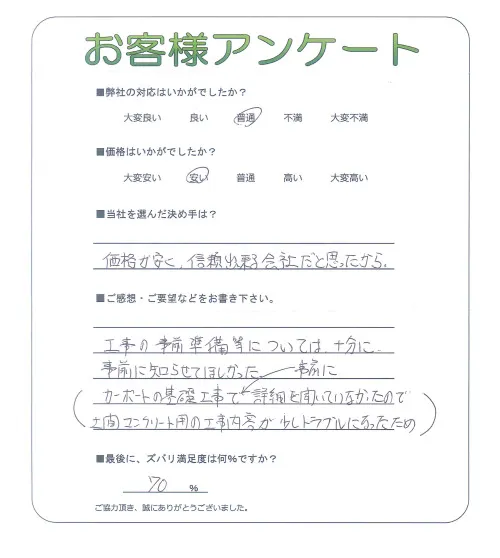 お客様アンケート
■弊社の対応はいかがでしたか?
大変良い 良い 普通 不満 大変不満
■価格はいかがでしたか?
大変安い 安い 普通 高い 大変高い
■当社を選んだ決め手は?
価格が安く、信頼出来る会社だと思ったから。
■ご感想・ご要望などをお書き下さい。
工事の事前準備等については、十分に、
事前に知らせてほしかった 事前に
(カーポートの基礎工事で詳細を聞いていなかったので
土間コンクリート用の工事内容が少しトラブルになったため)
■最後に、ズバリ満足度は何%ですか?
70 %
ご協力頂き、誠にありがとうございました。